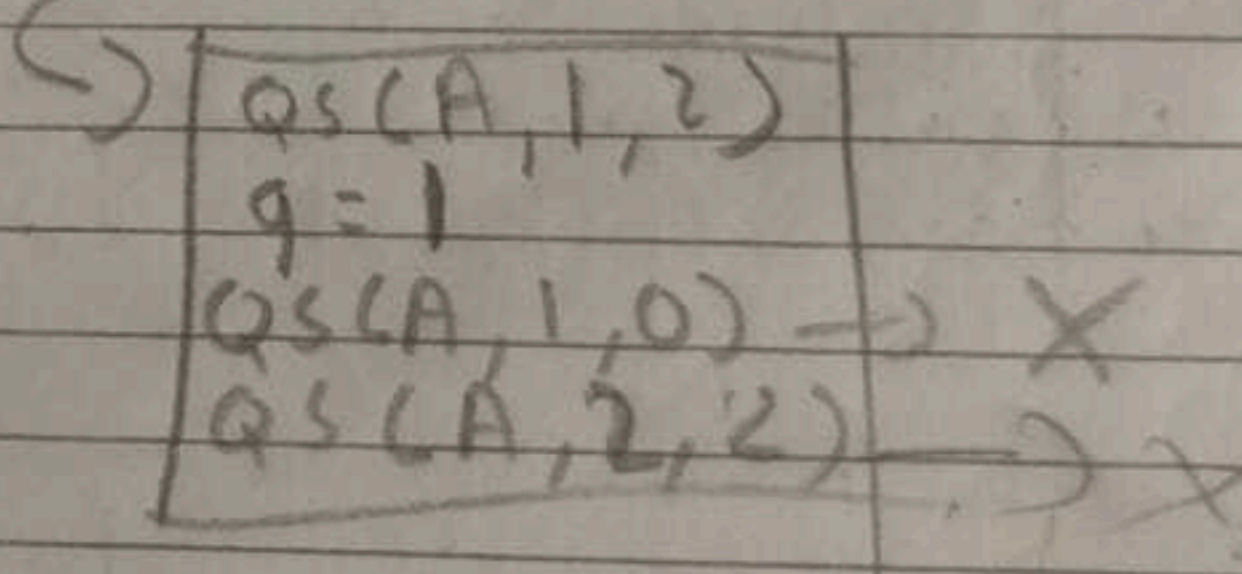 QS(A,1,2)
q=1
QS(A,1,0) → X
QS(A,2,2) → X